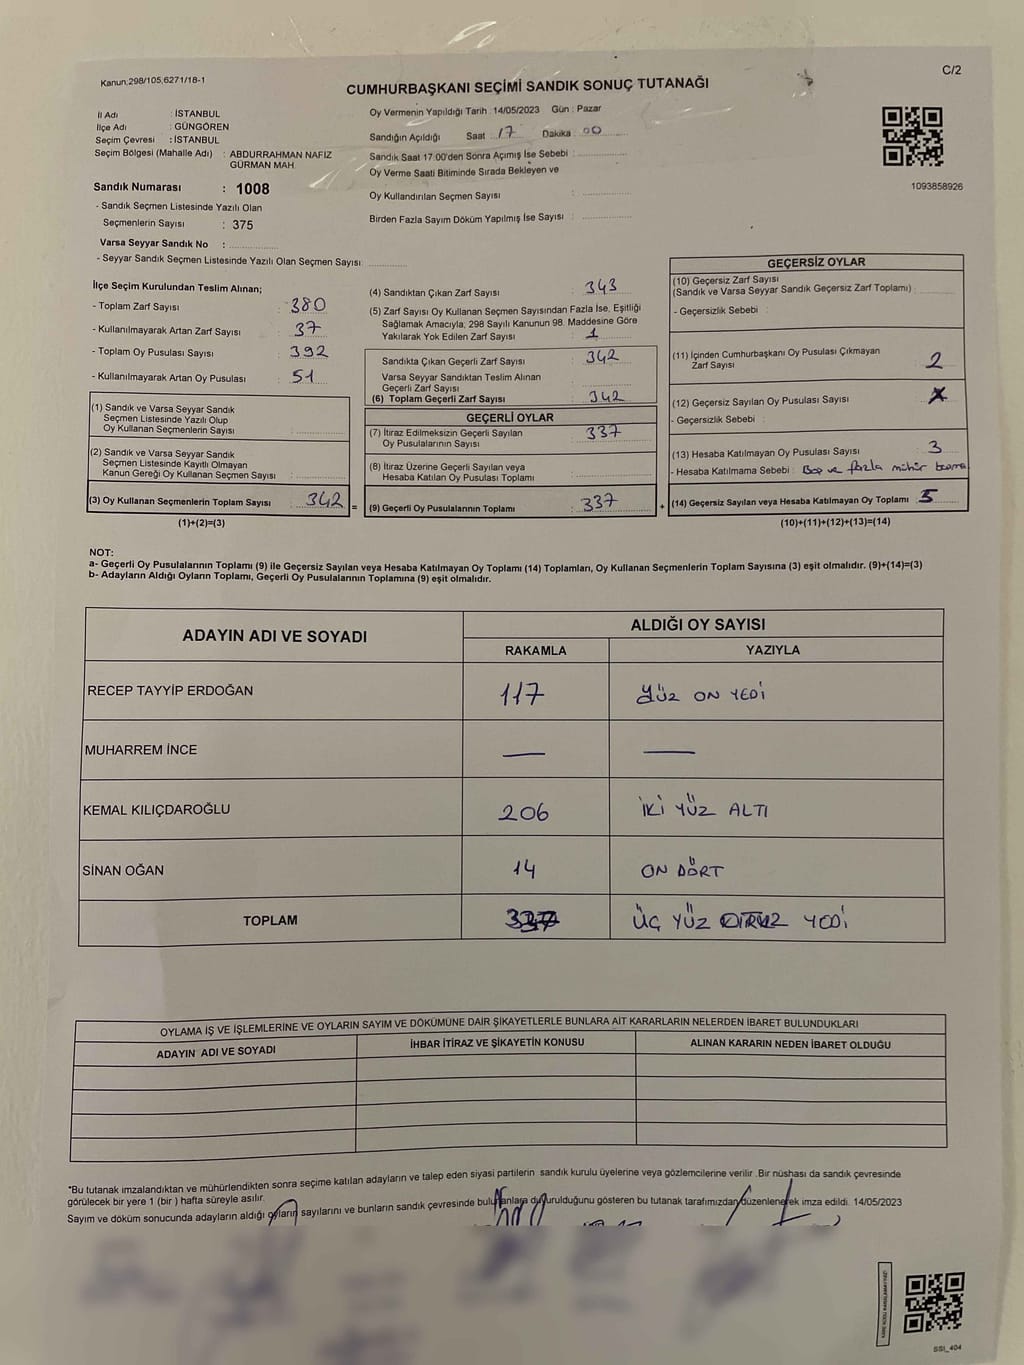 Kanun,298/105,6271/18-1
C/2
CUMHURBAŞKANI SEÇİMİ SANDIK SONUÇ TUTANAĞI
İl Adı : İSTANBUL
İlçe Adı : GÜNGÖREN
Seçim Çevresi : İSTANBUL
Seçim Bölgesi (Mahalle Adı) : ABDURRAHMAN NAFIZ
GÜRMAN MAH.
Sandık Numarası : 1008
- Sandık Seçmen Listesinde Yazılı Olan
Seçmenlerin Sayısı : 375
Varsa Seyyar Sandık No :
- Seyyar Sandık Seçmen Listesinde Yazılı Olan Seçmen Sayısı:
Oy Vermenin Yapıldığı Tarih : 14/05/2023 Gün : Pazar
Sandığın Açıldığı Saat 17 Dakika : 00
Sandık Saat 17:00'den Sonra Açımış İse Sebebi :
Oy Verme Saati Bitiminde Sırada Bekleyen ve
Oy Kullandırılan Seçmen Sayısı :
Birden Fazla Sayım Döküm Yapılmış İse Sayısı :
1093858926
İlçe Seçim Kurulundan Teslim Alınan;
- Toplam Zarf Sayısı : 380
- Kullanılmayarak Artan Zarf Sayısı : 37
- Toplam Oy Pusulası Sayısı : 392
- Kullanılmayarak Artan Oy Pusulası : 51
(1) Sandık ve Varsa Seyyar Sandık
Seçmen Listesinde Yazılı Olup
Oy Kullanan Seçmenlerin Sayısı :
(2) Sandık ve Varsa Seyyar Sandık
Seçmen Listesinde Kayıtlı Olmayan
Kanun Gereği Oy Kullanan Seçmen Sayısı :
(3) Oy Kullanan Seçmenlerin Toplam Sayısı : 342 =
(1)+(2)=(3)
(4) Sandıktan Çıkan Zarf Sayısı : 343
(5) Zarf Sayısı Oy Kullanan Seçmen Sayısından Fazla İse, Eşitliği
Sağlamak Amacıyla, 298 Sayılı Kanunun 98. Maddesine Göre
Yakılarak Yok Edilen Zarf Sayısı : 1
Sandıkta Çıkan Geçerli Zarf Sayısı : 342
Varsa Seyyar Sandıktan Teslim Alınan
Geçerli Zarf Sayısı :
(6) Toplam Geçerli Zarf Sayısı : 342
GEÇERLİ OYLAR
(7) İtiraz Edilmeksizin Geçerli Sayılan
Oy Pusulalarının Sayısı : 337
(8) İtiraz Üzerine Geçerli Sayılan veya
Hesaba Katılan Oy Pusulası Toplamı :
(9) Geçerli Oy Pusulalarının Toplamı : 337 +
GEÇERSİZ OYLAR
(10) Geçersiz Zarf Sayısı
(Sandık ve Varsa Seyyar Sandık Geçersiz Zarf Toplamı) :
- Geçersizlik Sebebi :
(11) İçinden Cumhurbaşkanı Oy Pusulası Çıkmayan
Zarf Sayısı : 2
(12) Geçersiz Sayılan Oy Pusulası Sayısı :
- Geçersizlik Sebebi :
(13) Hesaba Katılmayan Oy Pusulası Sayısı : 3
- Hesaba Katılmama Sebebi : Boş ve fazla mühür basma
(14) Geçersiz Sayılan veya Hesaba Katılmayan Oy Toplamı : 5
(10)+(11)+(12)+(13)=(14)
NOT:
a- Geçerli Oy Pusulalarının Toplamı (9) ile Geçersiz Sayılan veya Hesaba Katılmayan Oy Toplamı (14) Toplamları, Oy Kullanan Seçmenlerin Toplam Sayısına (3) eşit olmalıdır. (9)+(14)=(3)
b- Adayların Aldığı Oyların Toplamı, Geçerli Oy Pusulalarının Toplamına (9) eşit olmalıdır.
ADAYIN ADI VE SOYADI
ALDIĞI OY SAYISI
RAKAMLA YAZIYLA
RECEP TAYYİP ERDOĞAN 117 YÜZ ON YEDİ
MUHARREM İNCE — —
KEMAL KILIÇDAROĞLU 206 İKİ YÜZ ALTI
SİNAN OĞAN 14 ON DÖRT
TOPLAM 337 ÜÇ YÜZ OTUZ YEDİ
OYLAMA İŞ VE İŞLEMLERİNE VE OYLARIN SAYIM VE DÖKÜMÜNE DAİR ŞİKAYETLERLE BUNLARA AİT KARARLARIN NELERDEN İBARET BULUNDUKLARI
ADAYIN ADI VE SOYADI İHBAR İTİRAZ VE ŞİKAYETİN KONUSU ALINAN KARARIN NEDEN İBARET OLDUĞU
*Bu tutanak imzalandıktan ve mühürlendikten sonra seçime katılan adayların ve talep eden siyasi partilerin sandık kurulu üyelerine veya gözlemcilerine verilir .Bir nüshası da sandık çevresinde
görülecek bir yere 1 (bir ) hafta süreyle asılır.
Sayım ve döküm sonucunda adayların aldığı oyların sayılarını ve bunların sandık çevresinde bulunanlara duyurulduğunu gösteren bu tutanak tarafımızdan düzenlenerek imza edildi. 14/05/2023
SSI_404